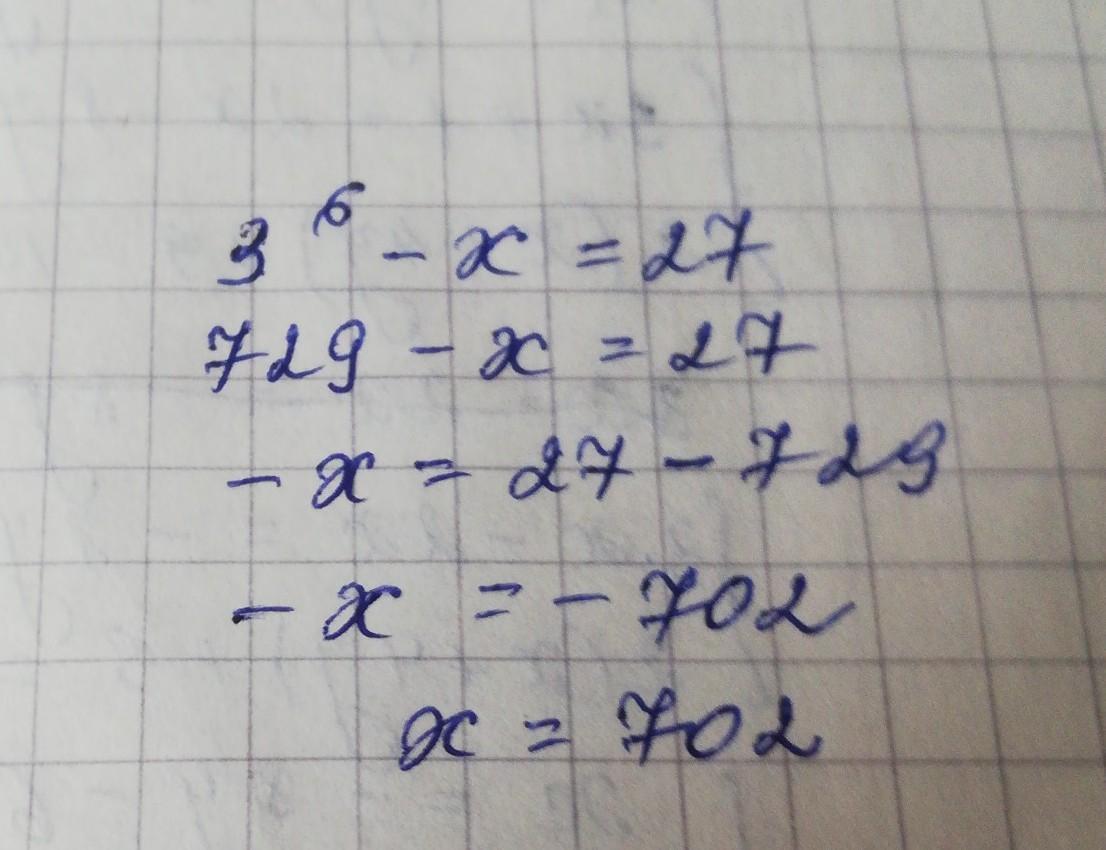 3⁶ - x = 27
729 - x = 27
- x = 27 - 729
- x = - 702
x = 702